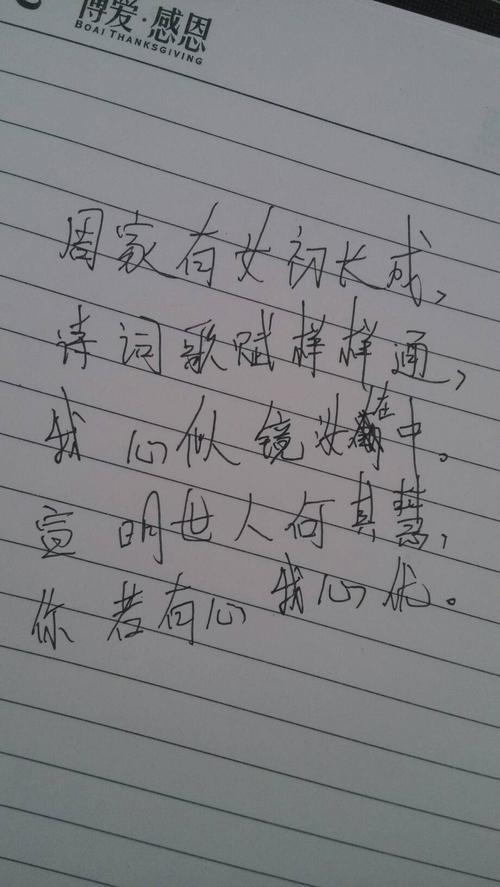 博爱·感恩
BOAI THANKSGIVING
周家有女初长成,
诗词歌赋样样通,
我心似镜汝在中。
宣明世人何其慧,
你若有心我心优。